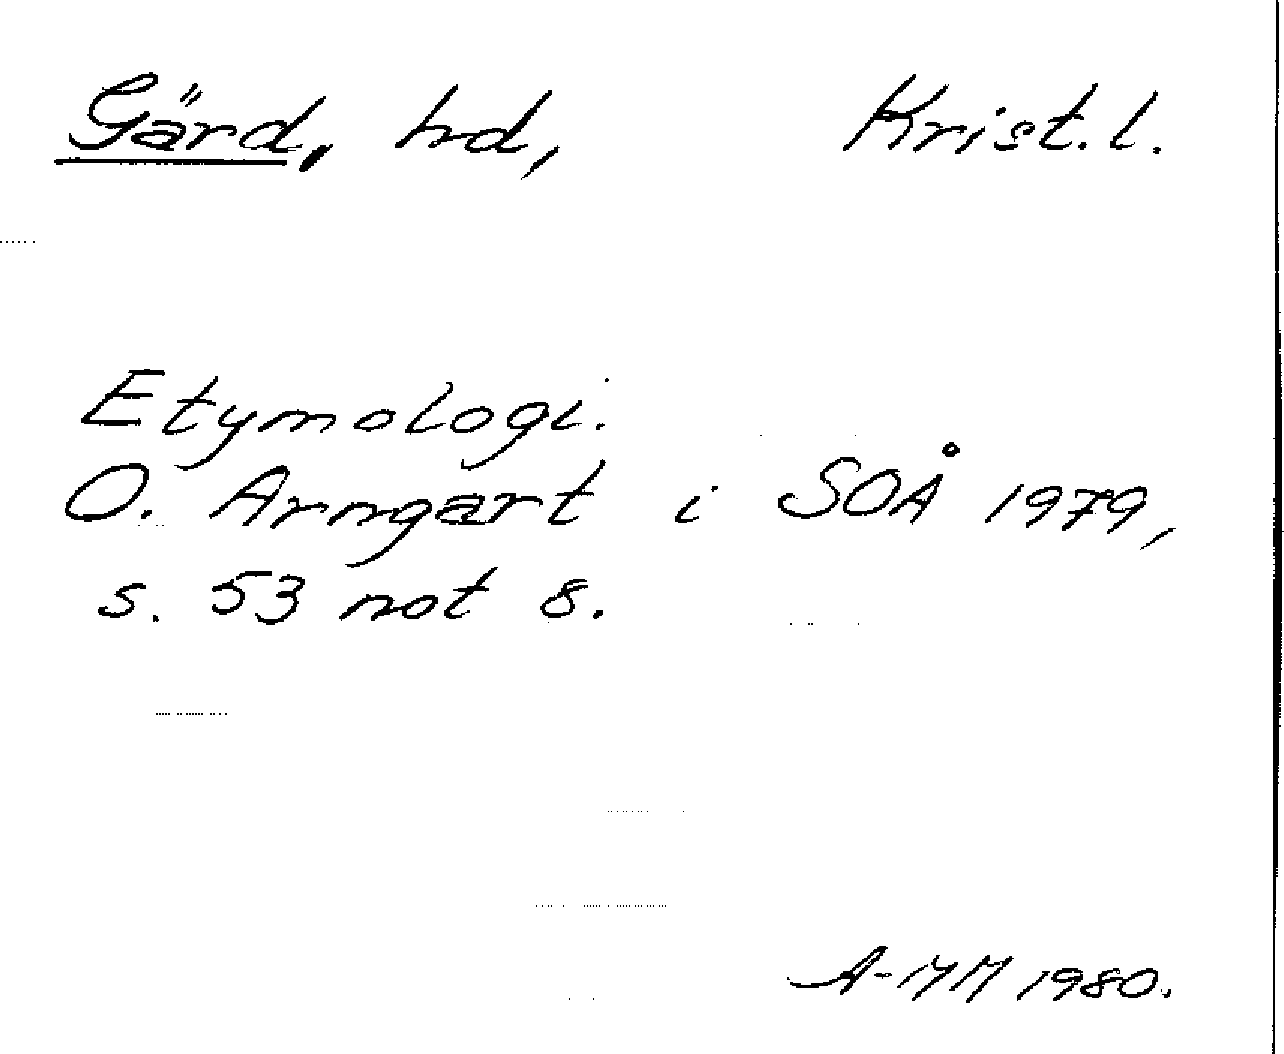 Gärd, hd, Krist. l.
Etymologi.
O. Arngart i SOÅ 1979,
s. 53 not 8.
A-MM 1980.